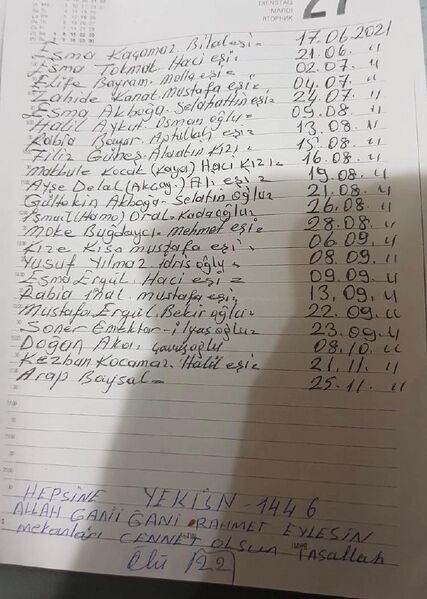 DIENSTAG
MARDI
ВТОРНИК
27
Esma Kaçamaz Bilaleşi = 17.06.2021
Esma Tokmak Haci eşi = 21.06. 4
Elife Bayram Molla eşi = 02.07. 4
Zahide Kanat Mustafa eşi = 04.07. 4
Esma Akboğa Selahattin eşi 24.07 4
Halil Aykut Osman oğlu = 09.08. 4
Rabia Bayar Aptullah eşi 13.08. 4
Filiz Güneş Kızı = 15.08. 4
Makbule Kocak (Kaya) Haci Kızı 16.08. 4
Ayşe Delal (Akçay) Ali eşi 19.08. 4
Gültekin Akboğa Selatin oğlu 21.08. 4
İsmail (Hamo) Oral 26.08. 4
Moke Buğdaycı Mehmet eşi = 28.08. 4
Kısa mustafa eşi 06.09. 4
Yusuf Yılmaz idris oğlu 08.09. 4
Esma Ergül Haci eşi = 09.09. 4
Rabia mustafa eşi 13.09. 4
Mustafa Ergül Bekir oğlu 22.09. 4
Soner Emektar - ilyas oğlu 23.09.4
Doğan 08.10. 4
Kezban Kocamaz Halil eşi 21.11. 4
Arap Baysal = 25.11. 4
HEPSİNE YEKÜN-1446
ALLAH GANİİ GANİ RAHMET EYLESİN
mekanları CENNET OLSUN
Ölü 122